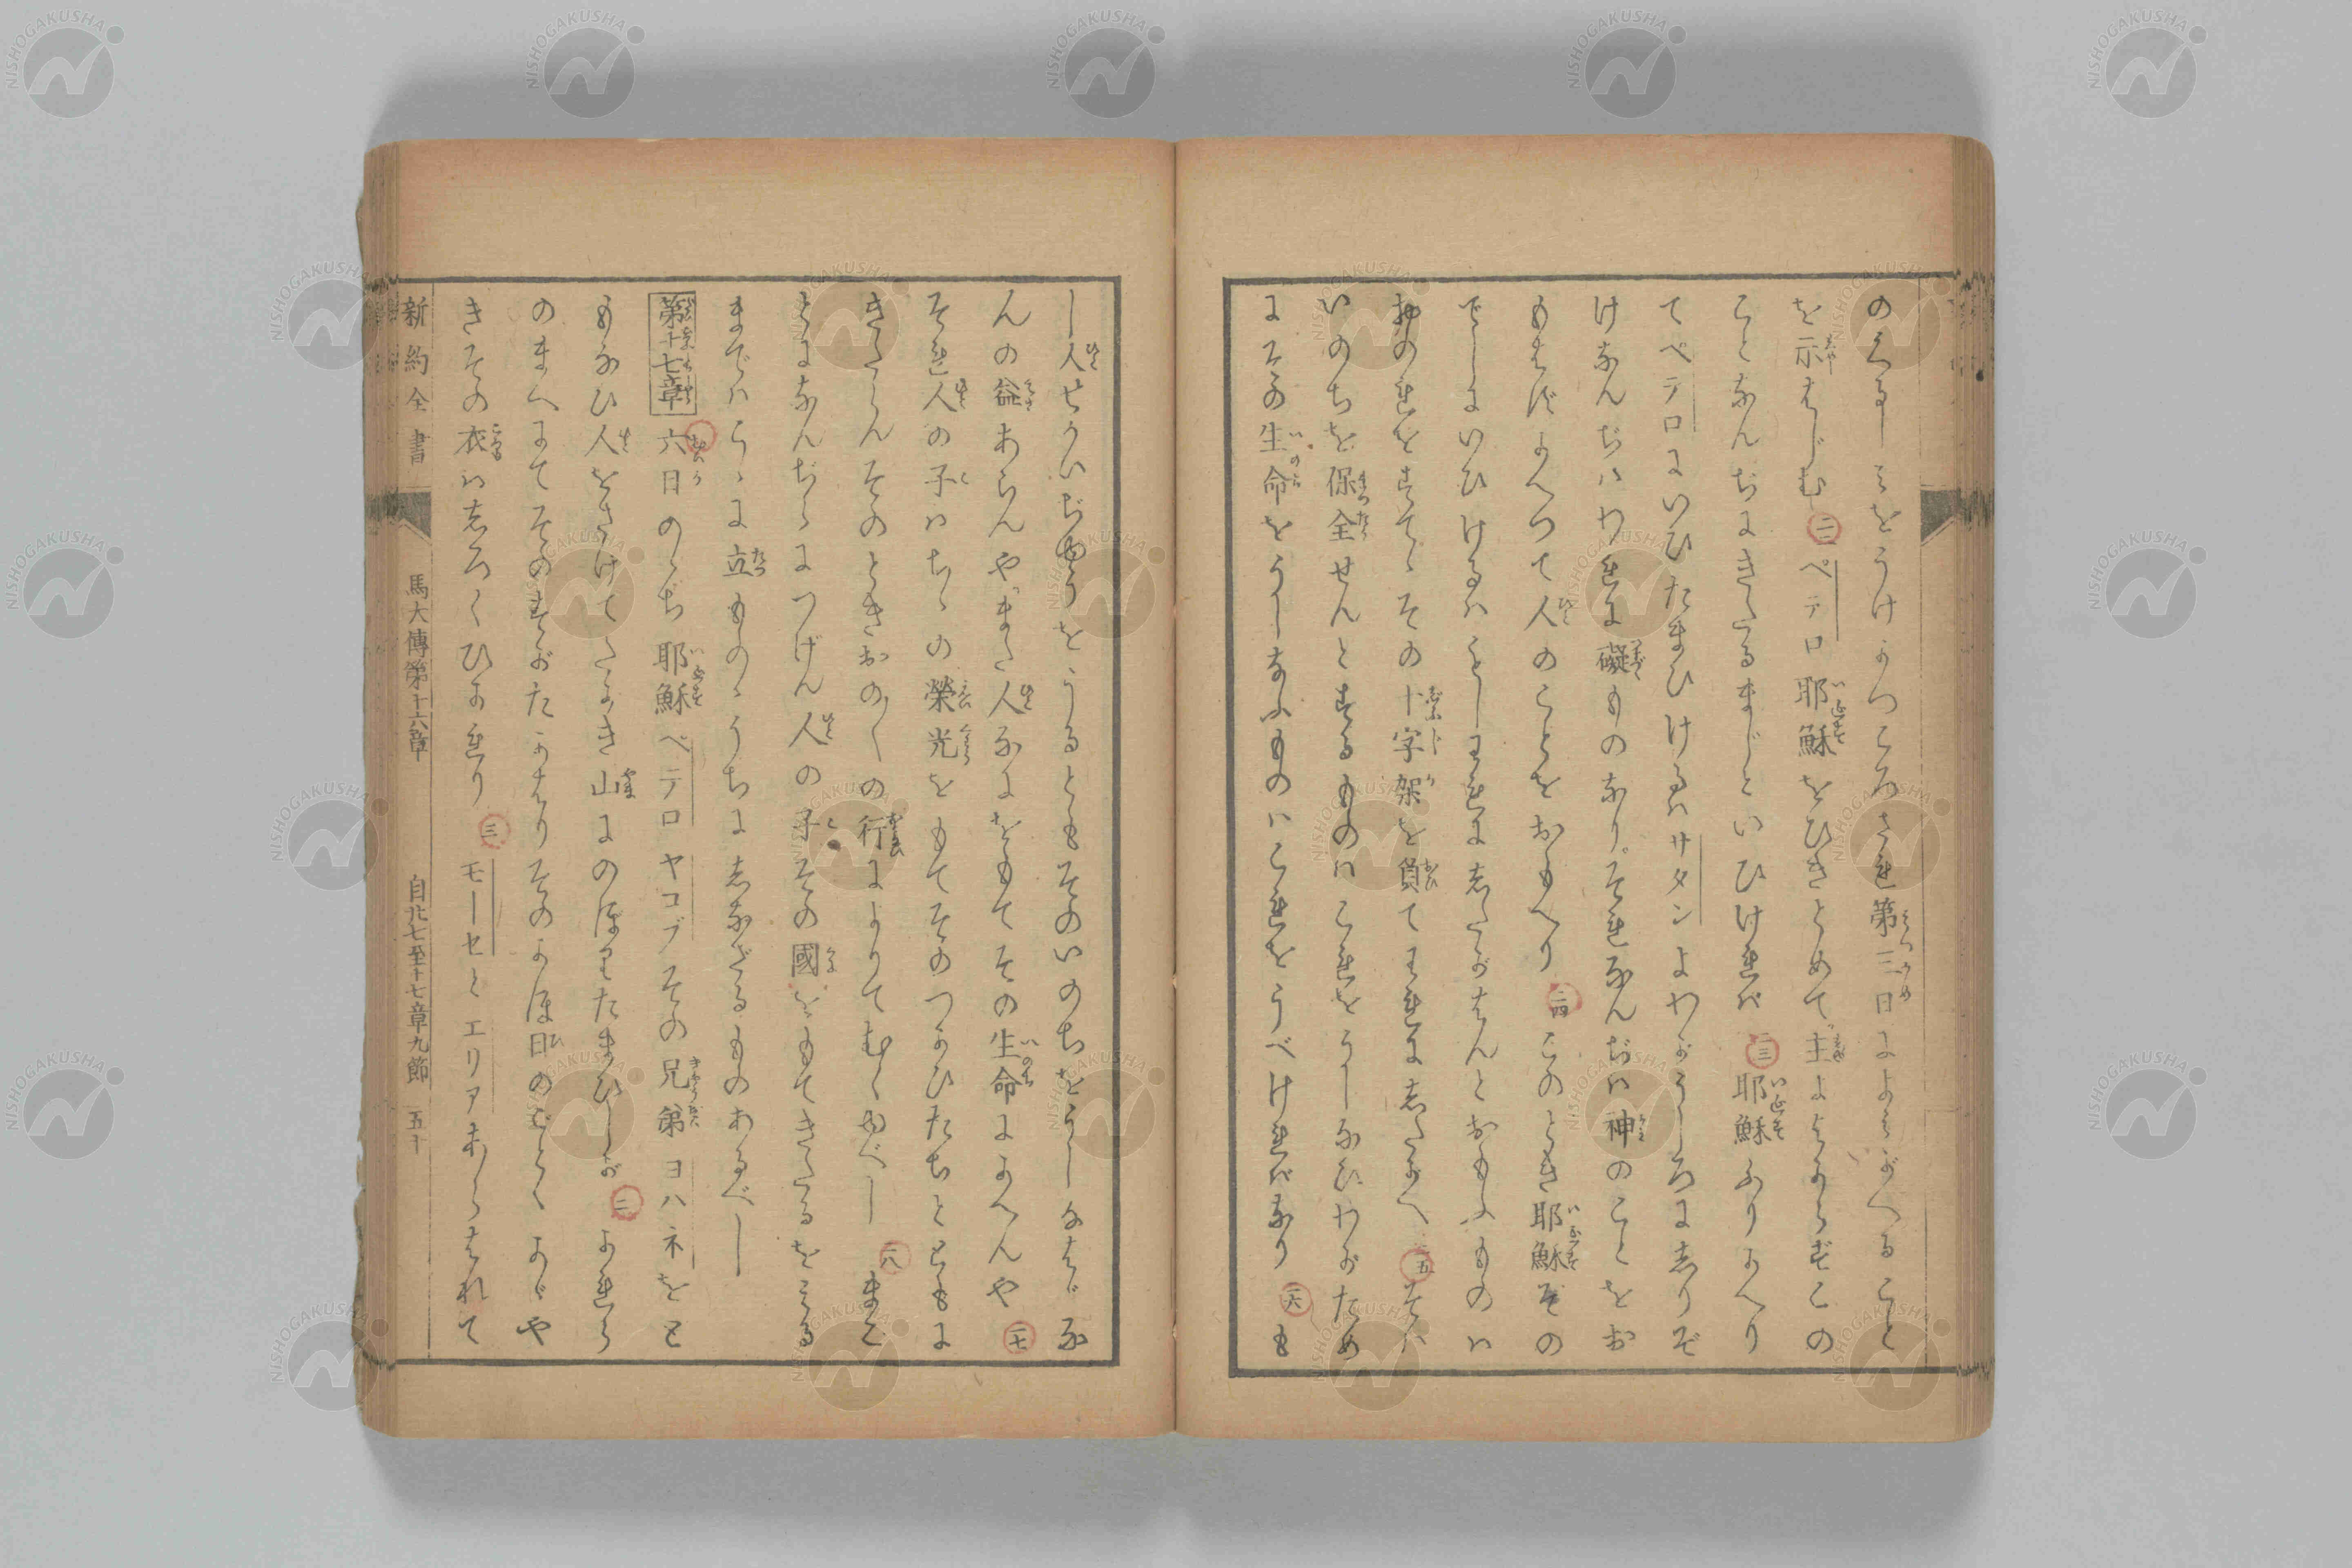 のくるしみをうけかつころされ第三日によみがへること
を示はじむ 二二 ペテロ耶穌をひきとめて主よよからずこの
ことなんぢにきたるまじといひければ 二三 耶穌ふりかへり
てペテロにいひたまひけるハサタンよわがうしろにしりぞ
けなんぢハわれに礙ものなりそれなんぢハ神のことをお
もはずかへつて人のことをおもへり 二四 このとき耶穌その
でしにいひけるハもしわれにしたがはんとおもふものハ
おのれをすてゝその十字架を負てわれにしたがへ 二五 そハ
いのちを保全せんとするものハこれをうしなひわがため
にその生命をうしなふものハこれをうべければなり 二六 も
し人せかいぢゆうをうるともそのいのちをうしなはゞな
んの益あらんやまた人なにをもてその生命にかへんや 二七
それ人の子ハちゝの榮光をもてそのつかひたちとともに
きたらんそのときおの／＼の行によりてむくゆべし 二八 まこ
とになんぢらにつげん人の子その國をもてきたるをみる
まではこゝに立ものゝうちにしなざるものあるべし
第十七章 六日のゝち耶穌ペテロヤコブその兄弟ヨハネをと
もなひ人をさけてたかき山にのぼりたまひしが 二 かれら
のまへにてそのすがたかはりそのかほ日のごとくかゞや
きその衣ハしろくひかれり 三 モーセとエリヤあらはれて
新約全書 馬太傳第十六章 自廿七至十七章九節 五十